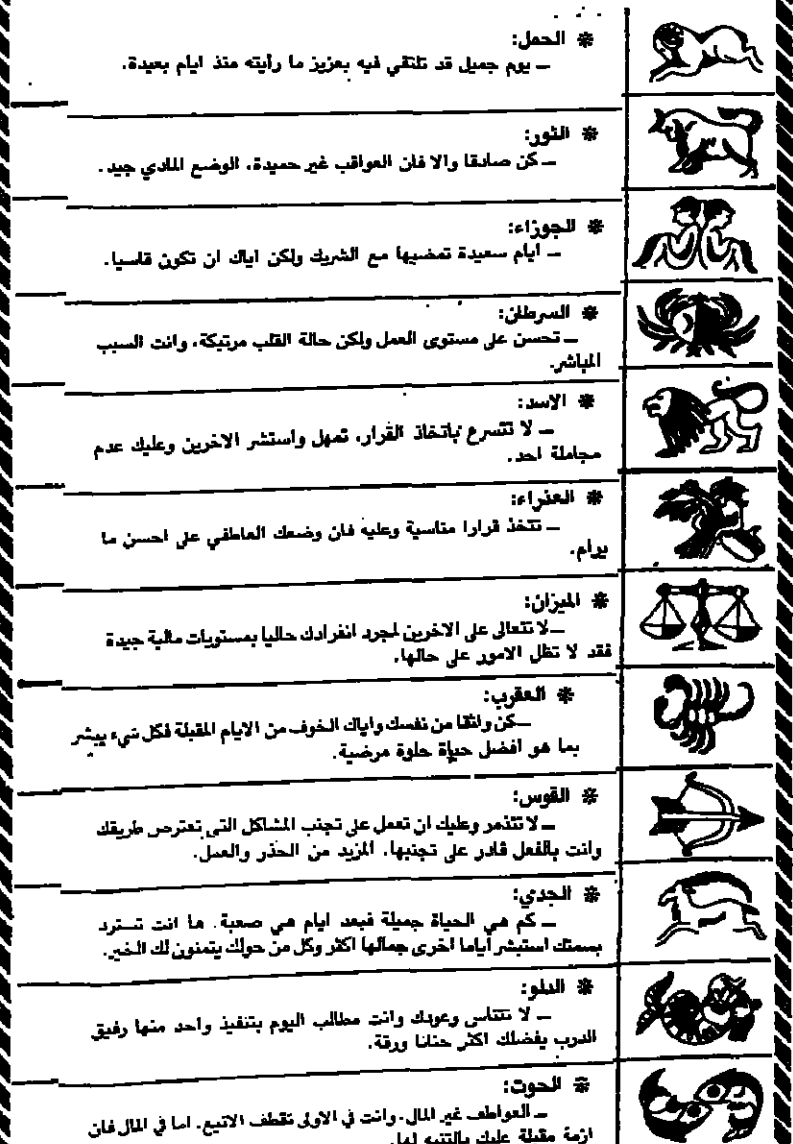 ❋ الحمل:
ــ يوم جميل قد تلتقي فيه بعزيز ما رأيته منذ ايام بعيدة.
❋ الثور:
ــ كن صادقا والا فان العواقب غير حميدة، الوضع المادي جيد.
❋ الجوزاء:
ــ ايام سعيدة تمضيها مع الشريك ولكن اياك ان تكون قاسيا.
❋ السرطان:
ــ تحسن على مستوى العمل ولكن حالة القلب مرتبكة، وانت السبب
المباشر.
❋ الاسد:
ــ لا تتسرع باتخاذ القرار، تمهل واستشر الاخرين وعليك عدم
مجاملة احد.
❋ العذراء:
ــ تتخذ قرارا مناسبة وعليه فان وضعك العاطفي على احسن ما
يرام.
❋ الميزان:
ــ لا تتعالى على الاخرين لمجرد انفرادك حاليا بمستويات مالية جيدة
فقد لا تظل الامور على حالها.
❋ العقرب:
ــ كن واثقا من نفسك واياك الخوف من الايام المقبلة فكل شيء يبشر
بما هو افضل حياة حلوة مرضية.
❋ القوس:
ــ لا تتذمر وعليك ان تعمل على تجنب المشاكل التي تعترض طريقك
وانت بالفعل قادر على تجنبها، المزيد من الحذر والعمل.
❋ الجدي:
ــ كم هي الحياة جميلة فبعد ايام هي صعبة. ها انت تسترد
بسمتك استبشر أياما اخرى جمالها اكثر وكل من حولك يتمنون لك الخير.
❋ الدلو:
ــ لا تتناسى وعودك وانت مطالب اليوم بتنفيذ واحد منها رفيق
الدرب يفضلك اكثر حنانا ورقة.
❋ الحوت:
ــ العواطف غير المال، وانت في الاولى تقطف الاتيع، اما في المال فان
ازمة مقبلة عليك بالتنبه لها.